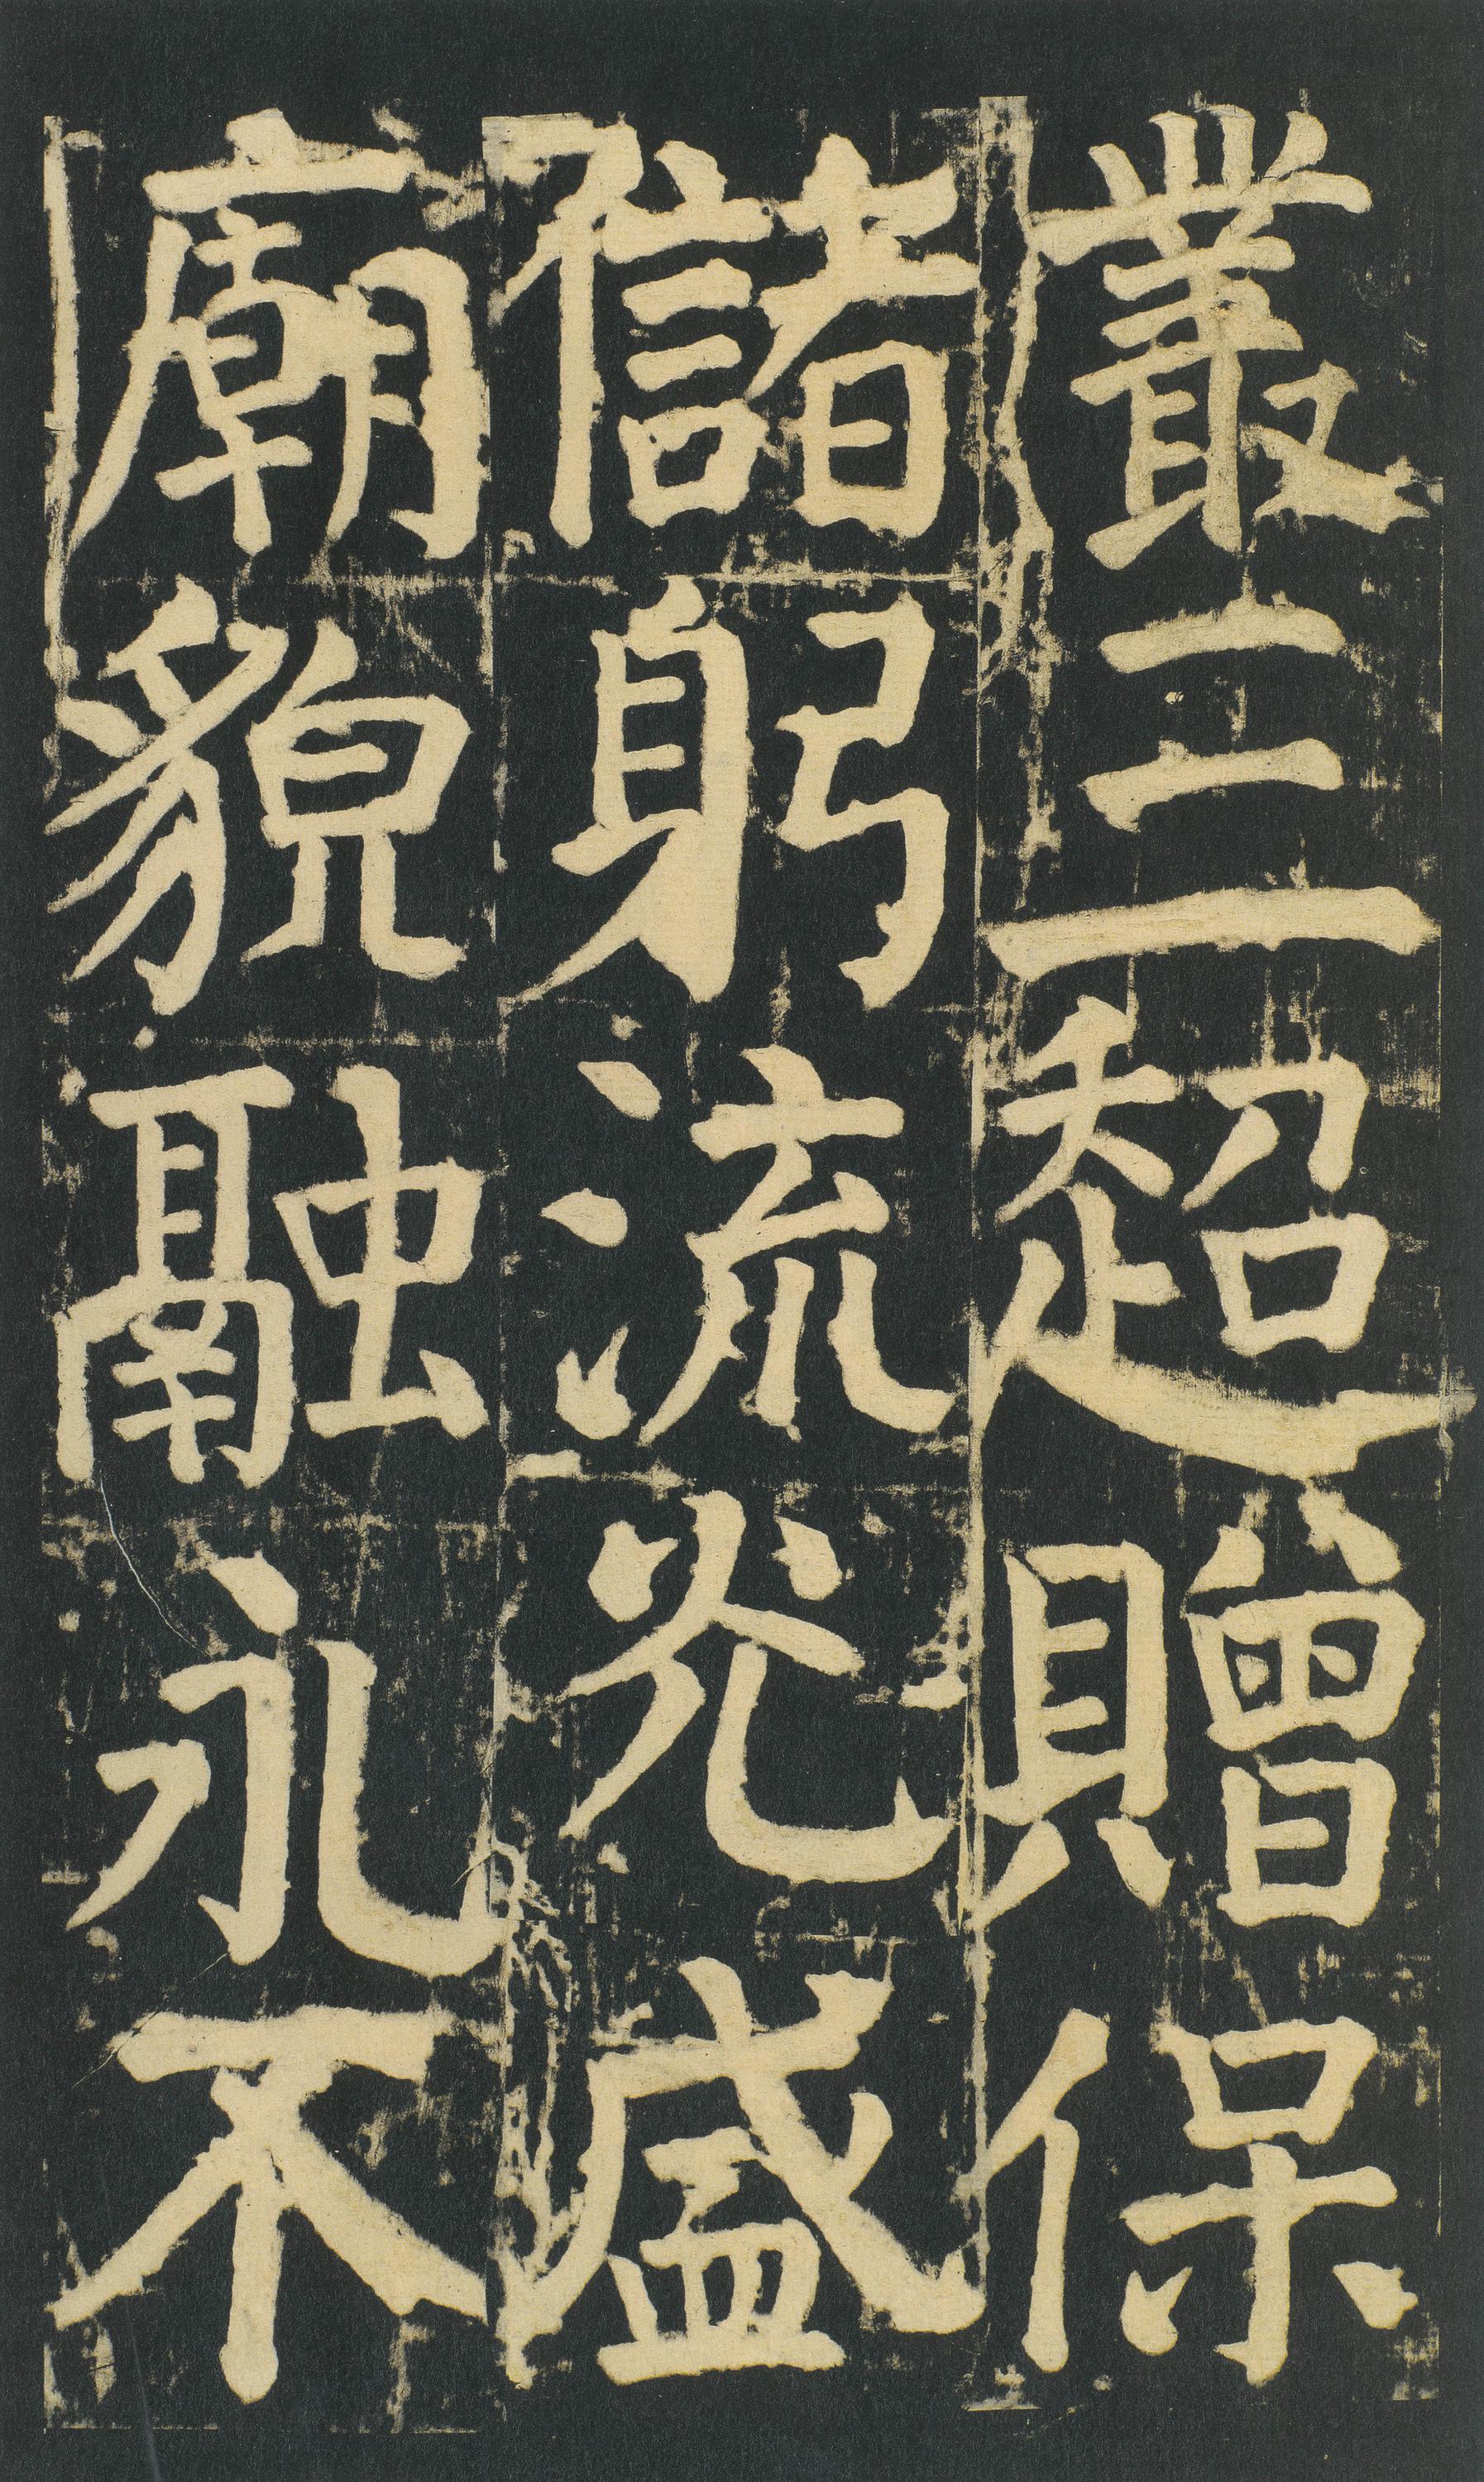 叢三超贈保
儲躬流光盛
廟貌融永不